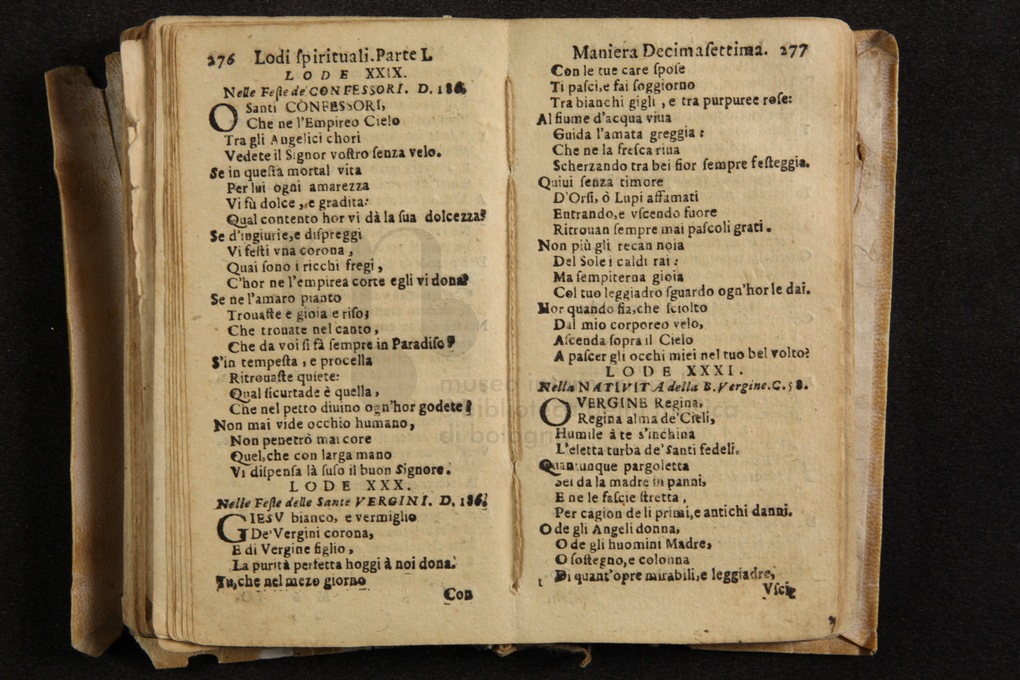 276 Lodi ſpirituali. Parte I.
LODE XXIX.
Nelle Feſte de' CONFESSORI. D. 186.
O Santi CONFESSORI,
Che ne l'Empireo Cielo
Tra gli Angelici chori
Vedete il Signor voſtro ſenza velo.
Se in queſta mortal vita
Per lui ogni amarezza
Vi fù dolce, e gradita:
Qual contento hor vi dà la ſua dolcezza?
Se d'ingiurie, e diſpreggi
Vi feſti vna corona,
Quai ſono i ricchi fregi,
C'hor ne l'empirea corte egli vi dona?
Se ne l'amaro pianto
Trouaſte e gioia e riſo;
Che trouate nel canto,
Che da voi ſi fà ſempre in Paradiſo?
S'in tempeſta, e procella
Ritrouaſte quiete:
Qual ſicurtade è quella,
Che nel petto diuino ogn'hor godete?
Non mai vide occhio humano,
Non penetrò mai core
Quel, che con larga mano
Vi diſpenſa là ſuſo il buon Signore.
LODE XXX.
Nelle Feſte delle Sante VERGINI. D. 186.
GIESV bianco, e vermiglio
De' Vergini corona,
E di Vergine figlio,
La purità perfetta hoggi à noi dona.
Tu, che nel mezo giorno
Con
Maniera Decimaſettima. 277
Con le tue care ſpoſe
Ti paſci, e fai ſoggiorno
Tra bianchi gigli, e tra purpuree roſe:
Al fiume d'acqua viua
Guida l'amata greggia:
Che ne la freſca riua
Scherzando tra bei fior ſempre feſteggia.
Quiui ſenza timore
D'Orſi, ò Lupi affamati
Entrando, e vſcendo fuore
Ritrouan ſempre mai paſcoli grati.
Non più gli recan noia
Del Sole i caldi rai:
Ma ſempiterna gioia
Col tuo leggiadro ſguardo ogn'hor le dai.
Hor quando fia, che ſciolto
Dal mio corporeo velo,
Aſcenda ſopra il Cielo
A paſcer gli occhi miei nel tuo bel volto?
LODE XXXI.
Nella NATIVITA della B. Vergine. C. 58.
O VERGINE Regina,
Regina alma de' Cieli,
Humile à te s'inchina
L'eletta turba de' Santi fedeli.
Quantunque pargoletta
Sei da la madre in panni,
E ne le faſcie ſtretta,
Per cagion de li primi, e antichi danni.
O de gli Angeli donna,
O de gli huomini Madre,
O ſoſtegno, e colonna
Di quant'opre mirabili, e leggiadre,
Vſcir